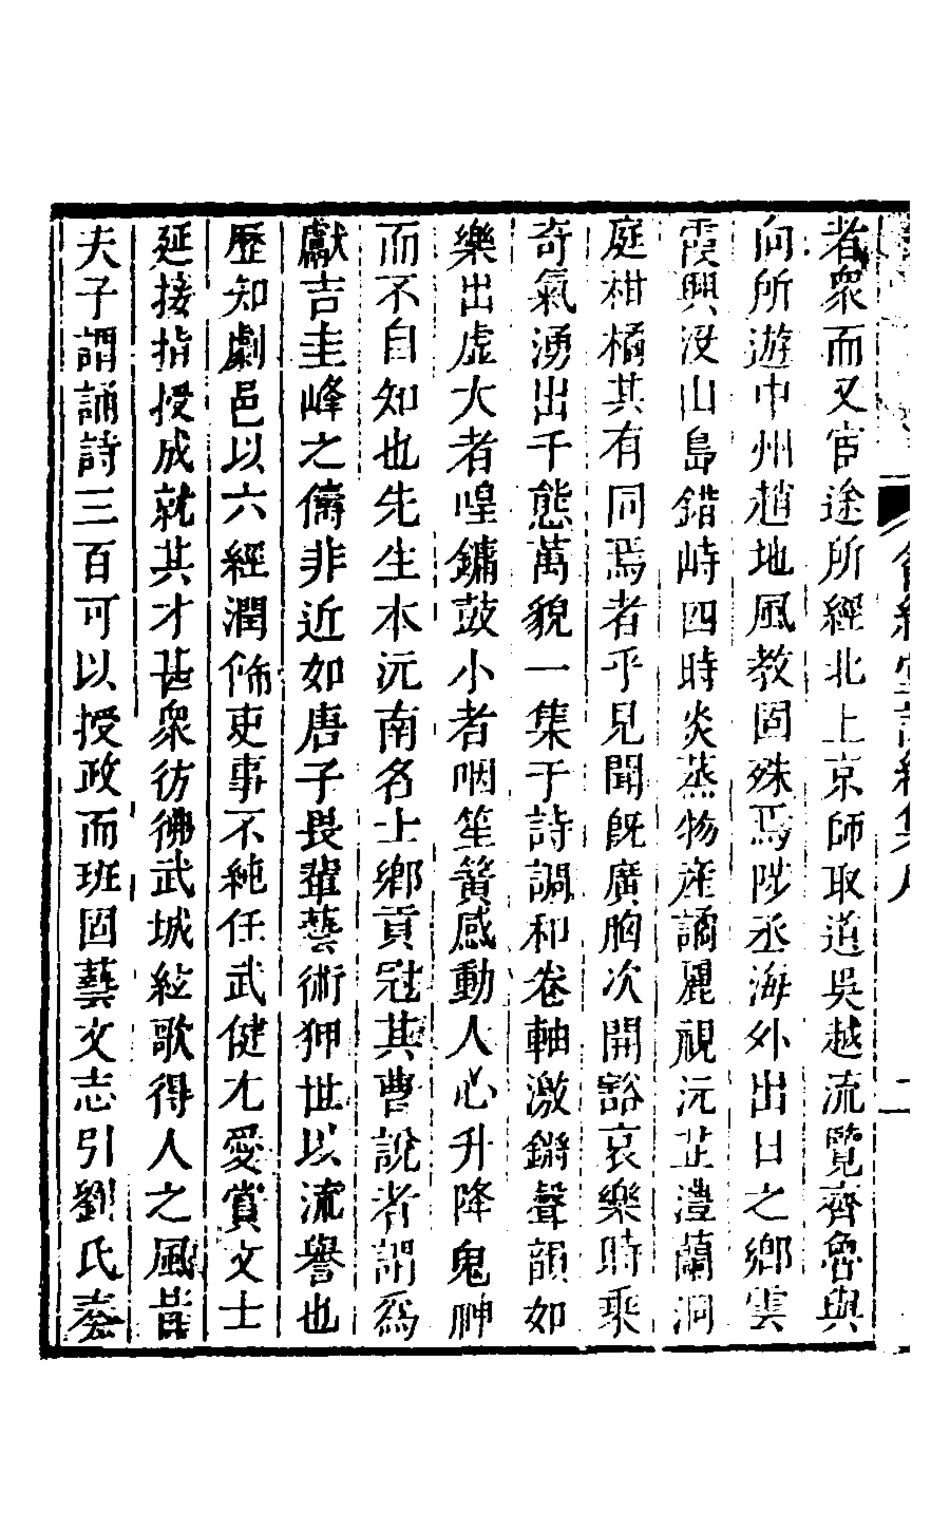 者衆而又宦途所經北上京師取道吳越流覽齊魯與
向所遊中州趙地風教固殊焉陟丞海外出日之鄉雲
霞興沒山島錯峙四時炎蒸物産譎麗視沅芷澧蘭洞
庭柑橘其有同焉者乎見聞旣廣胸次開豁哀樂時乘
奇氣湧出千態萬貌一集于詩調和卷軸激鏘聲韻如
樂出虛大者喤鏞鼓小者咽笙簧感動人心升降鬼神
而不自知也先生本沅南名士鄉貢冠其曹說者謂爲
獻吉圭峰之儔非近如唐子畏輩藝術狎世以流譽也
歷知劇邑以六經潤飾吏事不純任武健尤愛賞文士
延接指授成就其才甚衆彷彿武城絃歌得人之風昔
夫子謂誦詩三百可以授政而班固藝文志引劉氏奏